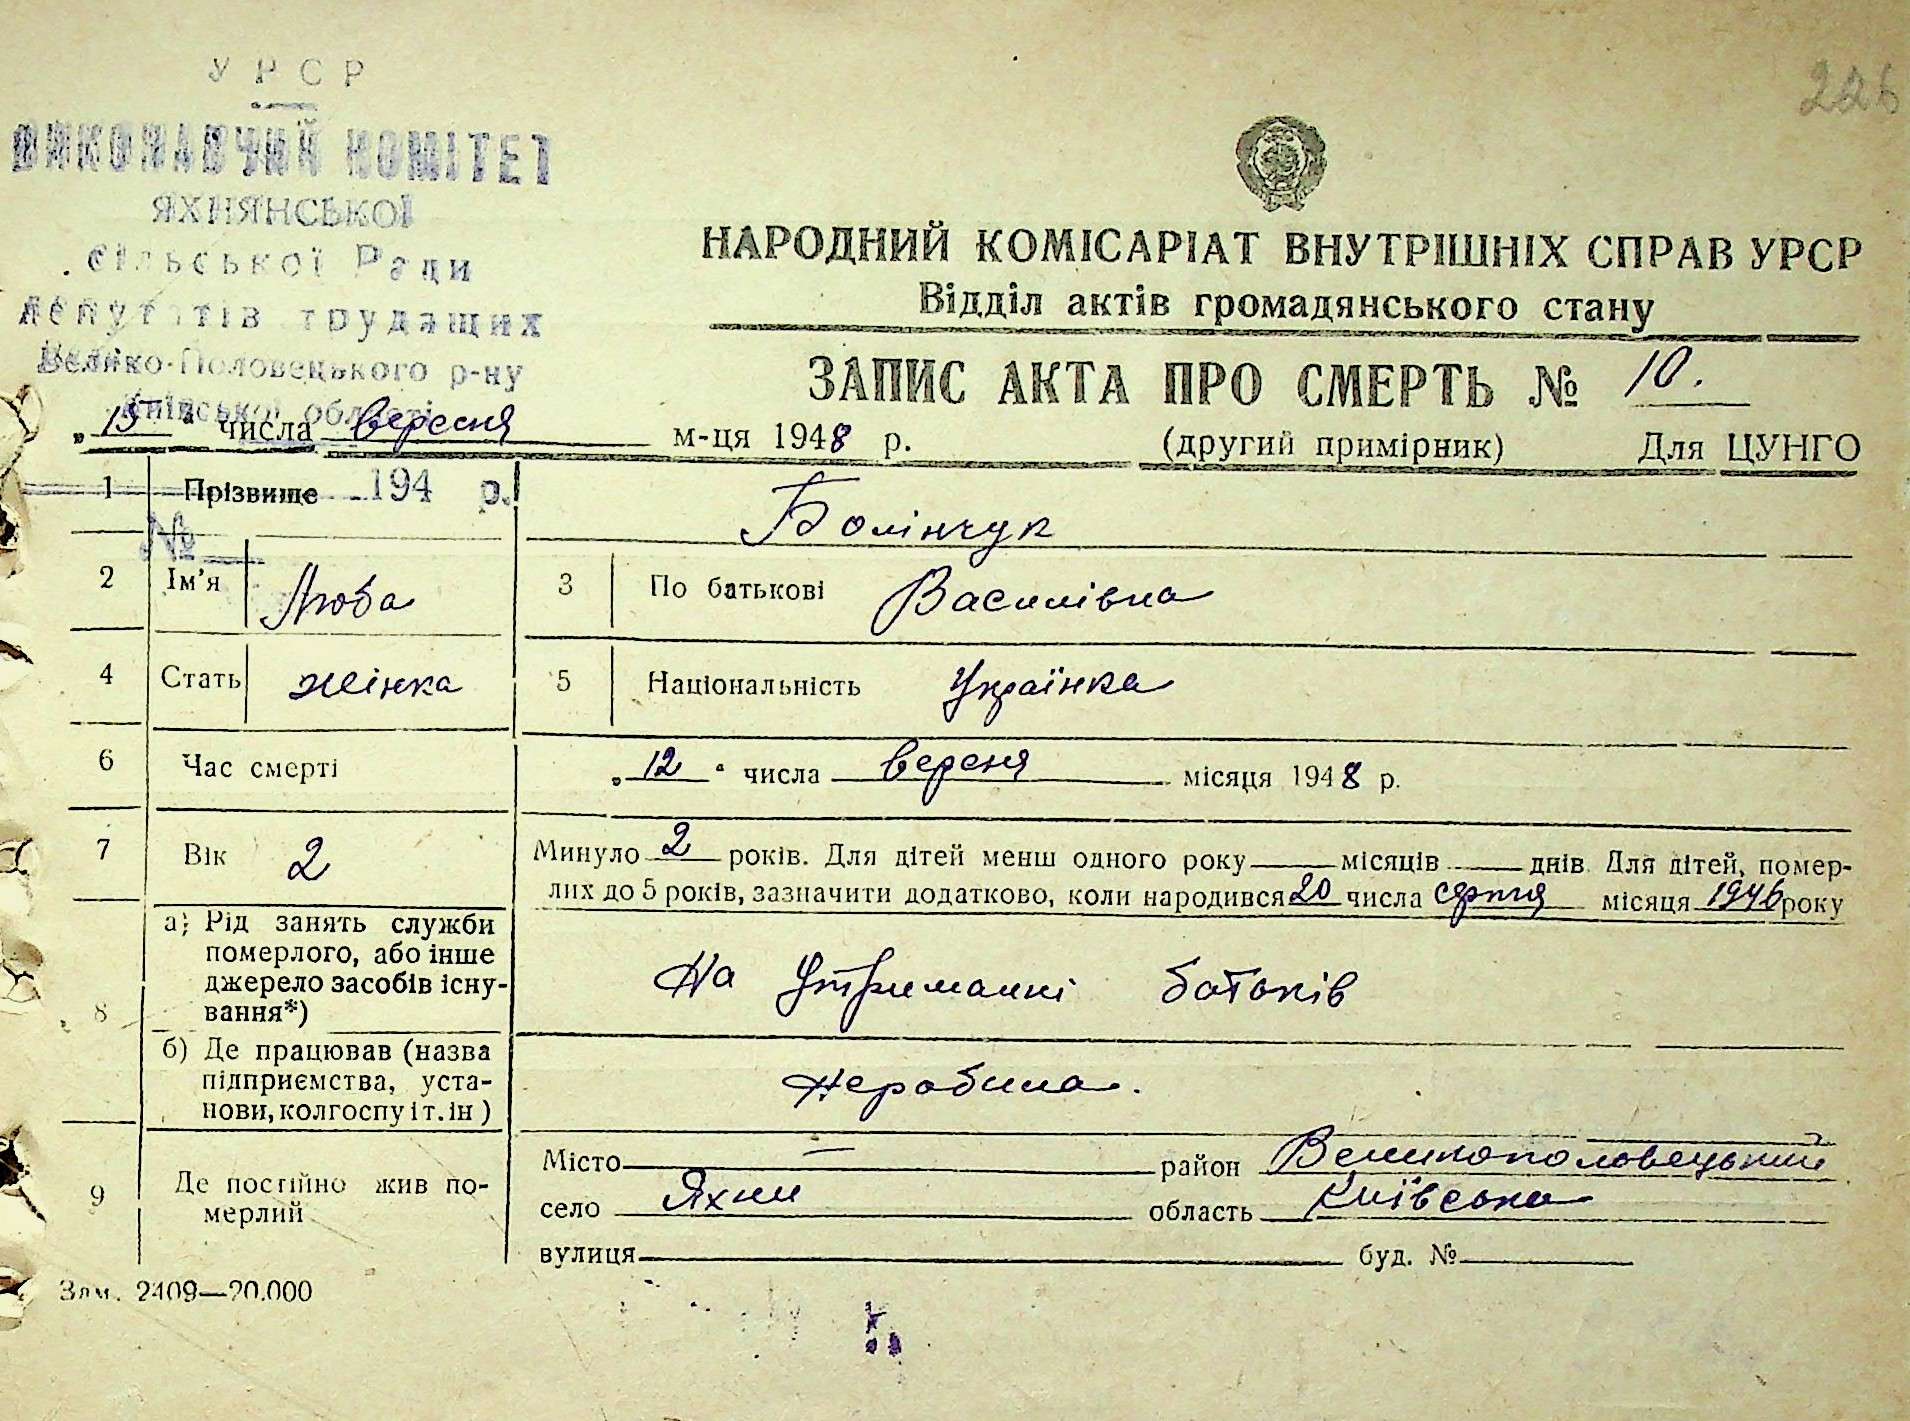 226
УРСР
ВИКОНАВЧИЙ КОМІТЕТ
ЯХНЯНСЬКОЇ
сільської Ради
депутатів трудящих
Велико-Половецького р-ну
Київської області
194 р.
№
НАРОДНИЙ КОМІСАРІАТ ВНУТРІШНІХ СПРАВ УРСР
Відділ актів громадянського стану
ЗАПИС АКТА ПРО СМЕРТЬ № 10.
„15“ числа вересня м-ця 1948 р. (другий примірник) Для ЦУНГО
1 Прізвище Болінчук
2 Ім'я Люба 3 По батькові Василівна
4 Стать жінка 5 Національність Українка
6 Час смерті „12“ числа вересня місяця 1948 р.
7 Вік 2 Минуло 2 років. Для дітей менш одного року місяців днів. Для дітей, помер-
лих до 5 років, зазначити додатково, коли народився 20 числа серпня місяця 1946 року
8 а) Рід занять служби
померлого, або інше
джерело засобів існу-
вання*)
На утриманні батьків
б) Де працював (назва
підприємства, уста-
нови, колгоспу і т. ін)
неробила.
9 Де постійно жив по-
мерлий
Місто — район Великополовецький
село Яхни область Київська
вулиця буд. №
Зам. 2409—20.000